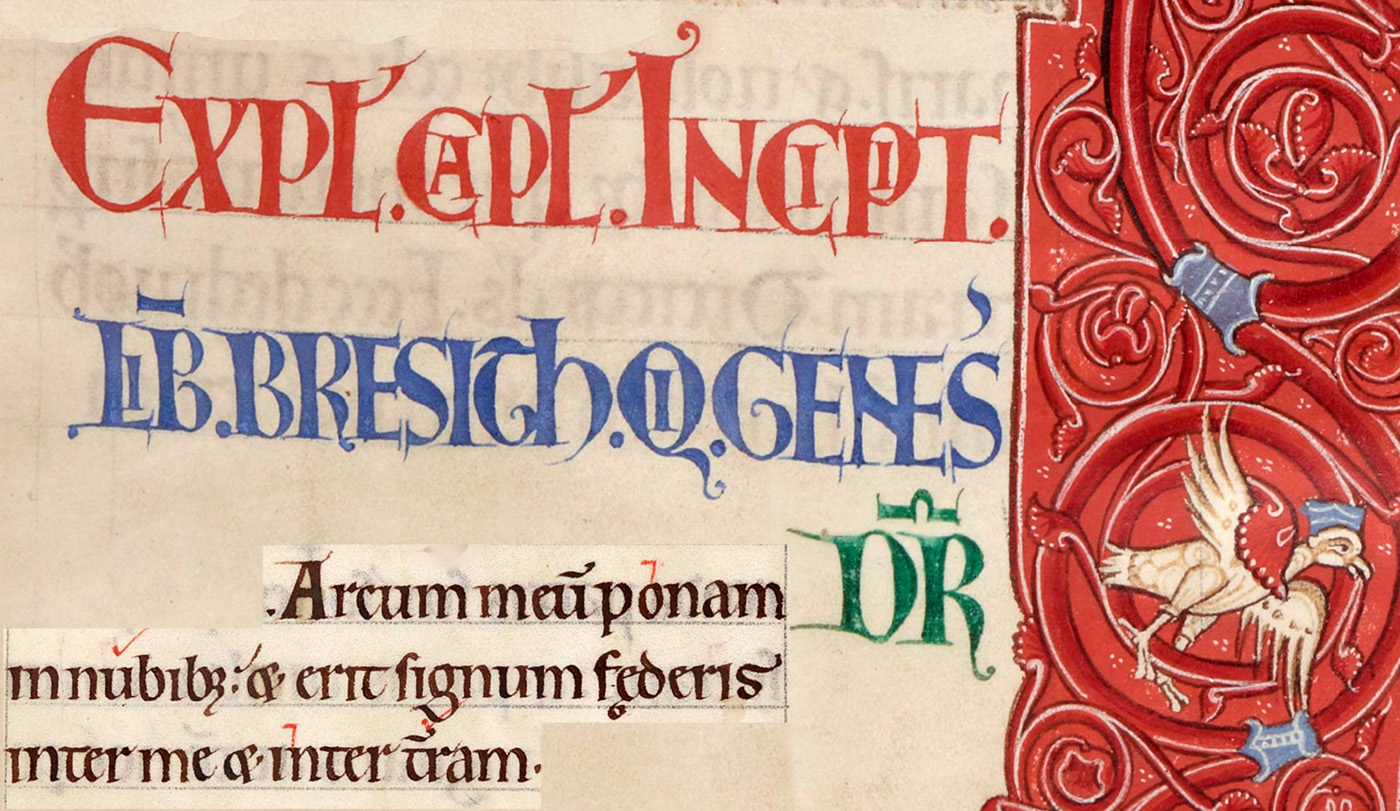 EXPL̅. CAPL̅. INCIPT.
LIB̅. BRESITh. Q̇I. GENES᾿
DR̅
.Arcum meū ponam
in nubibꝫ: & erit signum fęderis
inter me & inter tr̄am.